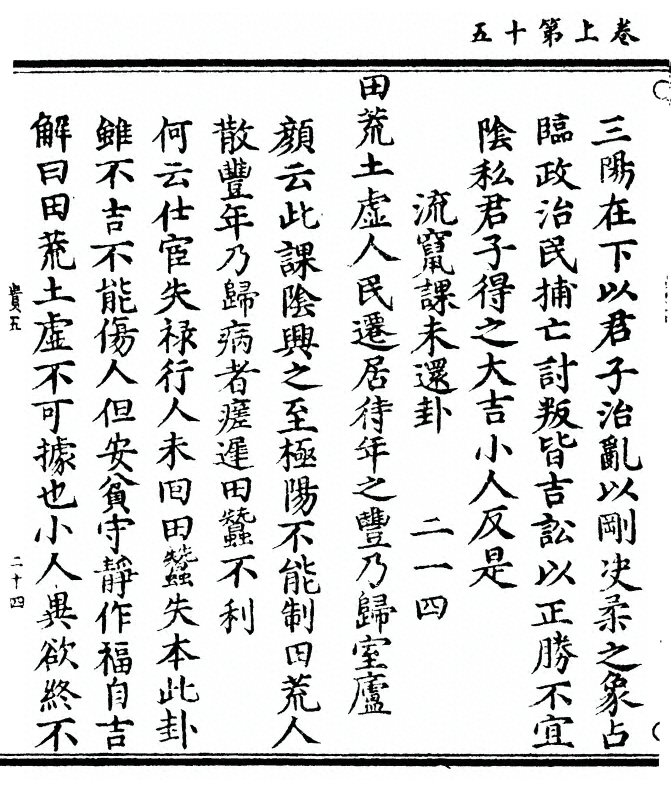 卷上第十五
三陽在下以君子治亂以剛决柔之象占
臨政治民捕亡討叛皆吉訟以正勝不宜
陰私君子得之大吉小人反是
流竄課未還卦 二一四
田荒土虛人民遷居待年之豐乃歸室廬
顏云此課陰興之至極陽不能制田荒人
散豐年乃歸病者瘥遲田蠶不利
何云仕宦失祿行人未囘田蠶失本此卦
雖不吉不能傷人但安貧守靜作福自吉
解曰田荒土虛不可據也小人異欲終不
賁五
二十四